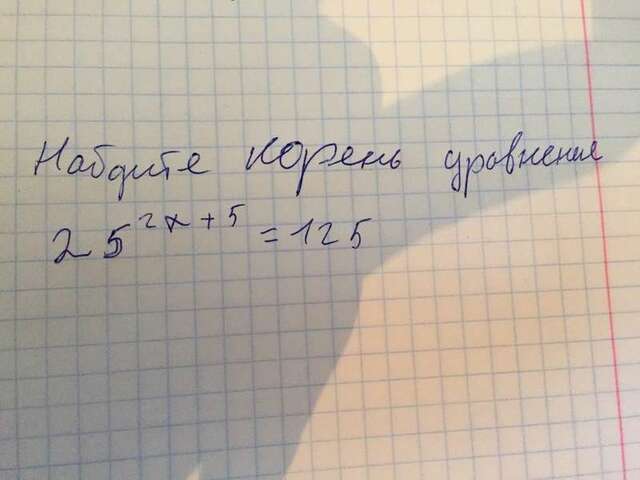 Найдите корень уравнения
25^{2x+5}=125